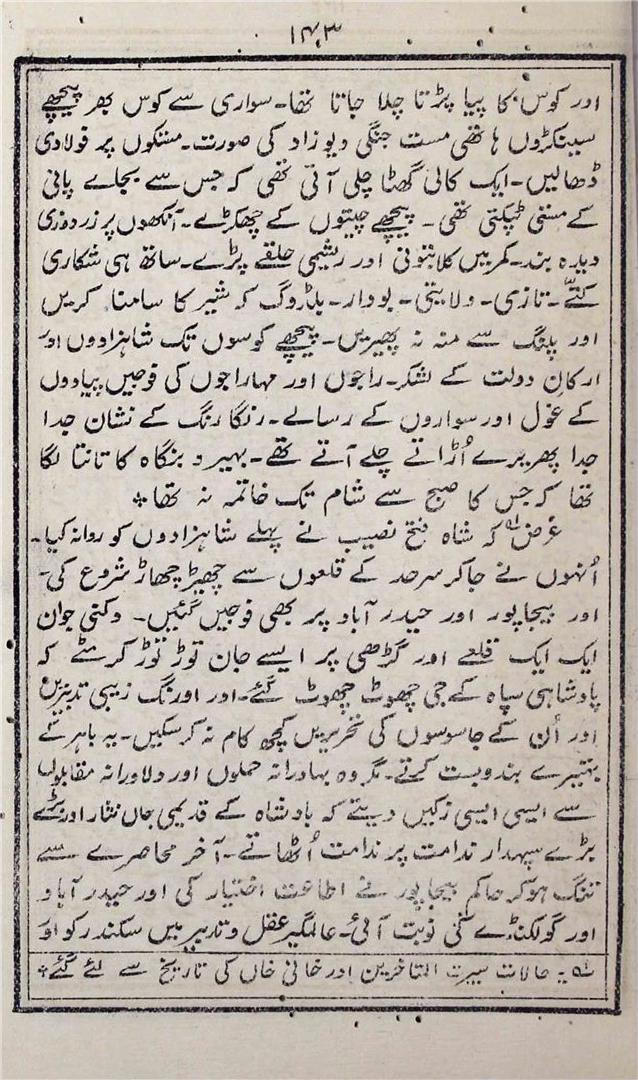 ۱۴۳
اور کوس کا پہیا پڑتا چلا جاتا تھا۔ سواری سے کوس بھر پیچھے
سینکڑوں ہاتھی مست جنگی دیوزاد کی صورت۔ مستکوں پر فولادی
ڈھالیں۔ ایک کالی گھٹا چلی آتی تھی کہ جس سے بجاے پانی
کے مستی ٹپکتی تھی۔ پیچھے چیتوں کے چھکڑے۔ آنکھوں پر زردوزی
دیدہ بند۔ کمریں کلابتونی اور ریشمی حلقے پڑے۔ ساتھ ہی شکاری
کتّے۔ تازی۔ ولایتی۔ بودار۔ بلڈوگ کہ شیر کا سامنا کریں
اور پلنگ سے منہ نہ پھیریں۔ پیچھے کوسوں تک شاہزادوں اور
ارکانِ دولت کے لشکر۔ راجوں اور مہاراجوں کی فوجیں پیادوں
کے غول اور سواروں کے رسالے۔ رنگا رنگ کے نشان جدا
جدا پھریرے اُڑاتے چلے آتے تھے۔ بہیر و بنگاہ کا تانتا لگا
تھا کہ جس کا صبح سے شام تک خاتمہ نہ تھا *
غرض لہ کہ شاہ فتح نصیب نے پہلے شاہزادوں کو روانہ کیا۔
اُنہوں نے جا کر سرحد کے قلعوں سے چھیڑ چھاڑ شروع کی۔
اور بیجاپور اور حیدر آباد پر بھی فوجیں گئیں۔ دکنی جوان
ایک ایک قلعے اور گڑھی پر ایسے جان توڑ توڑ کر مٹے کہ
پادشاہی سپاہ کے جی چھوٹ چھوٹ گئے۔ اور اورنگ زیبی تدبیریں
اور اُن کے جاسوسوں کی تحریریں کچھ کام نہ کرسکیں۔ یہ باہر کے
بہتیرے بندوبست کرتے۔ مگر وہ بہادرانہ حملوں اور دلاورانہ مقابلوں
سے ایسی ایسی زکیں دیتے کہ بادشاہ کے قدیمی جاں نثار اور بڑے
بڑے سپہدار ندامت پر ندامت اُٹھاتے۔ آخر محاصرے سے
تنگ ہوکر حاکم بیجاپور نے اطاعت اختیار کی اور حیدر آباد
اور گولکنڈے کی نوبت آئی۔ عالمگیر عقل و تدبیر میں سکندر کو اور
لہ یہ حالات سیرت المتاخرین اور خافی خاں کی تاریخ سے لئے گئے *